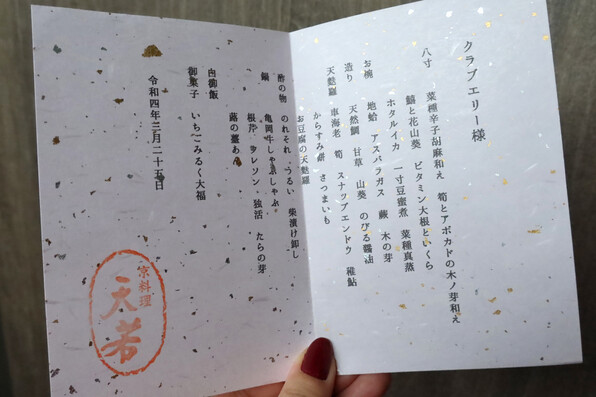 クラブエリー様
八寸　菜種辛子胡麻和え　筍とアボカドの木ノ芽和え
鱚と花山葵　ビタミン大根といくら
ホタルイカ　一寸豆蜜煮　菜種真蒸
お椀　地蛤　アスパラガス　蕨　木の芽
造り　天然鯛　甘草　山葵　のびる醤油
天麩羅　車海老　筍　スナップエンドウ　稚鮎
からすみ餅　さつまいも
お豆腐の天麩羅
酢の物　のれそれ　うるい　柴漬け卸し
鍋　亀岡牛しゃぶしゃぶ
根芹　クレソン　独活　たらの芽
蕗の薹あん
白御飯
御菓子　いちごみるく大福
令和四年三月二十五日
京料理
天若